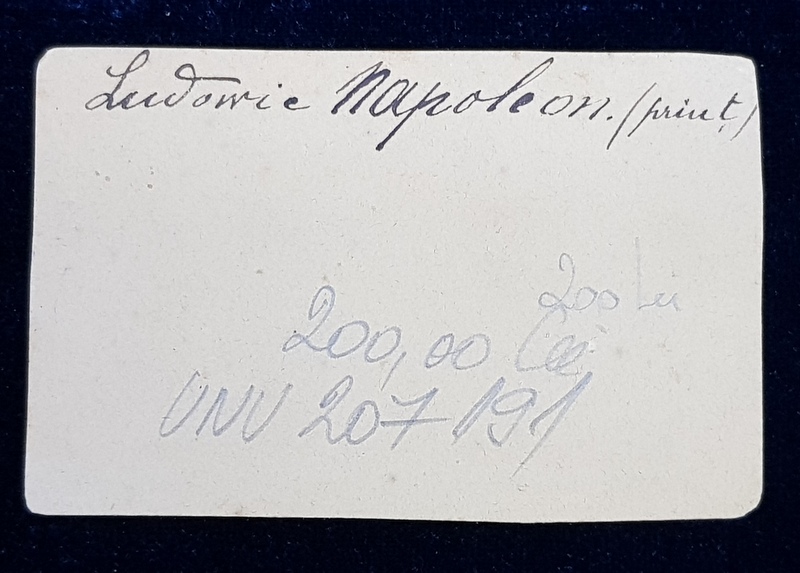 Ludovic Napoleon. (prinț)
200 lei
200,00 lei
UNU 207 191